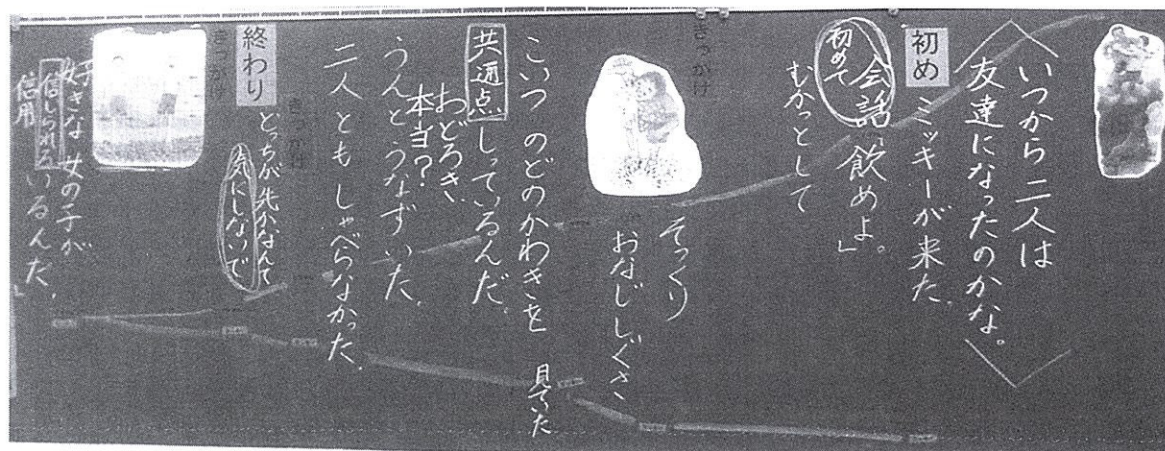 いつから二人は
友達になったのかな。
初め
ミッキーが来た。
初めて
会話「飲めよ。」
むかっとして
きっかけ
そっくり
おなじしぐさ
見ていた
こいつ のどのかわきを
共通点 しっているんだ。
おどろき、
本当？
うんとうなずいた。
二人とも しゃべらなかった。
きっかけ
終わり
どっちが先かなんて
気にしないで
きっかけ
好きな女の子が
信じられる いるんだ。」
信用